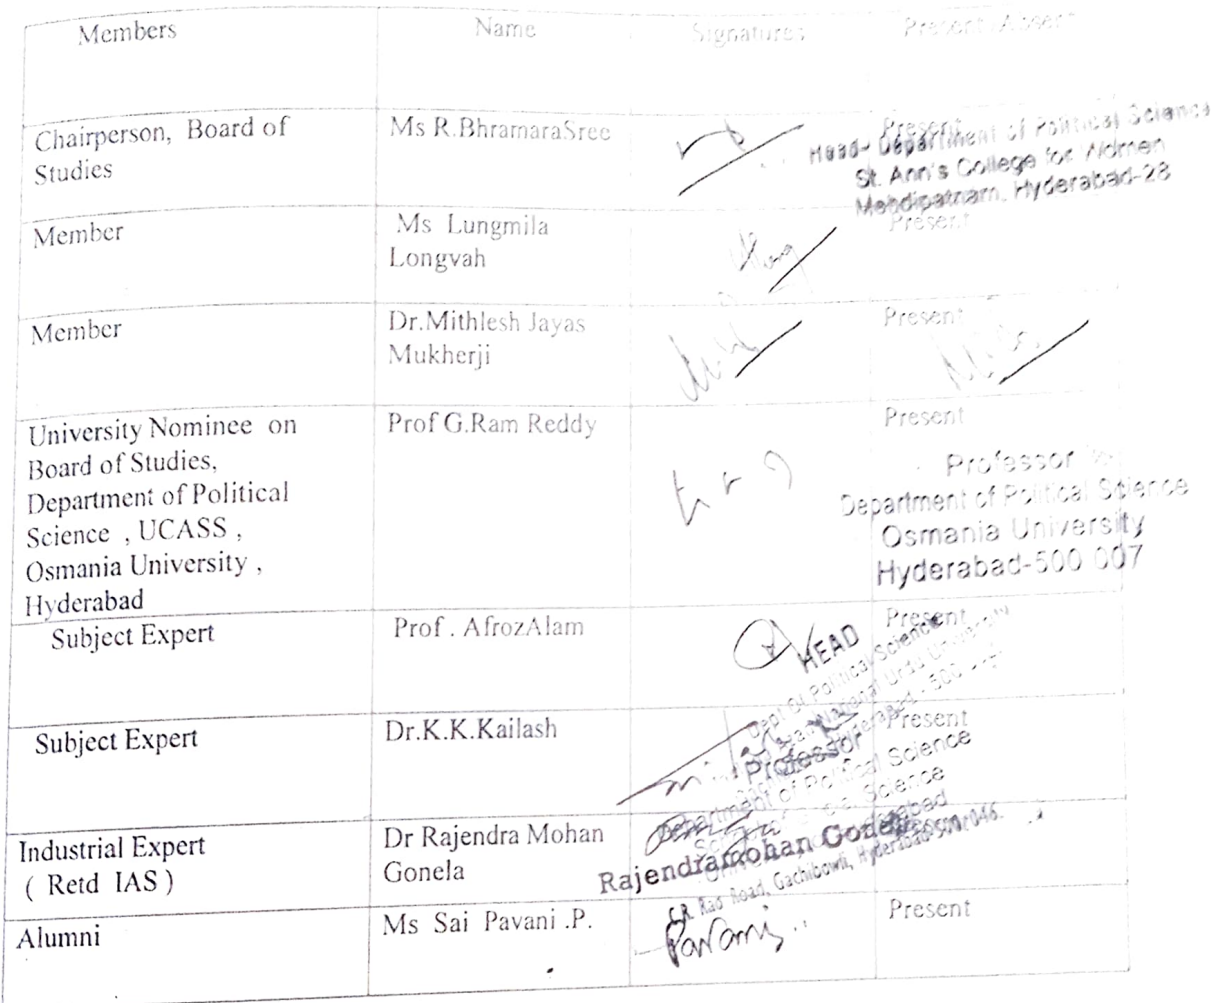 Members Name Signatures Present/Absent
Chairperson, Board of Studies Ms R.BhramaraSree Present
Head- Department of Political Science
St. Ann's College for Women
Mehdipatnam, Hyderabad-28
Member Ms Lungmila Longvah Present
Member Dr.Mithlesh Jayas Mukherji Present
University Nominee on
Board of Studies,
Department of Political
Science , UCASS ,
Osmania University ,
Hyderabad
Prof G.Ram Reddy
Present
Professor
Department of Political Science
Osmania University
Hyderabad-500 007
Subject Expert Prof . AfrozAlam Present
HEAD
Dept Of Political Science
National Urdu University
Subject Expert Dr.K.K.Kailash Present
Professor
Department of Political Science
Industrial Expert
( Retd IAS )
Dr Rajendra Mohan
Gonela
Rajendramohan Gonela
C.R. Rao Road, Gachibowli, Hyderabad-500 046.
Alumni Ms Sai Pavani .P. Pavani Present